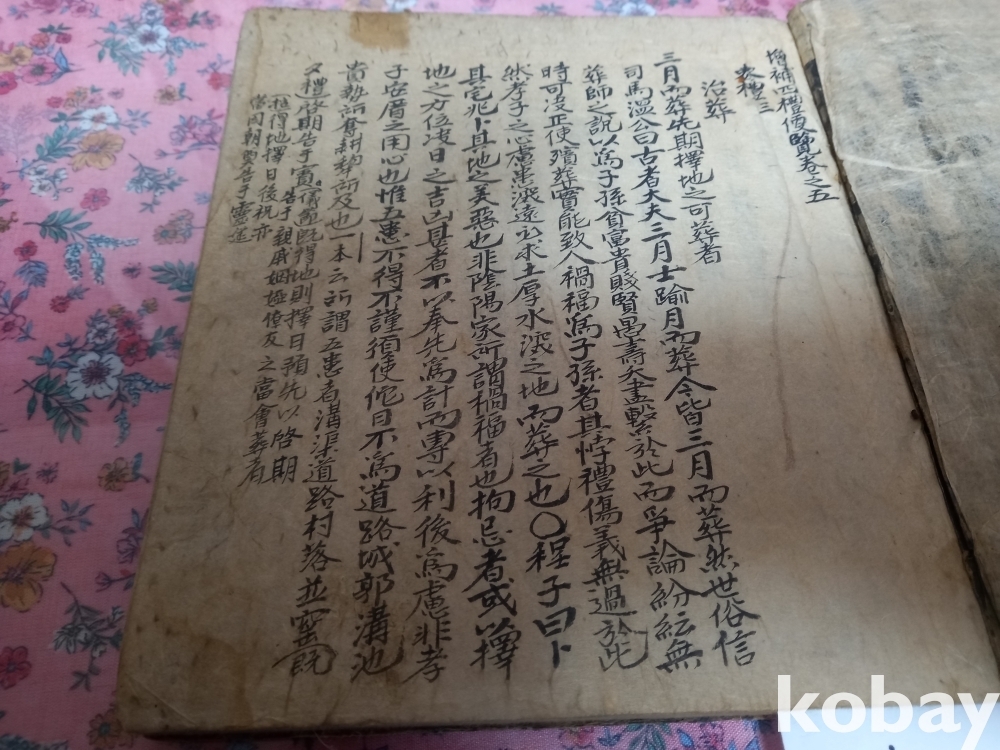 增補四禮便覽卷之五
喪禮三
治葬
三月而葬先期擇地之可葬者
司馬溫公曰古者大夫三月士踰月而葬今皆三月而葬然世俗信
葬師之說以爲子孫貧富貴賤賢愚壽夭盡繫於此而爭論紛紜無
時可決正使殯葬實能致人禍福爲子孫者其悖禮傷義無過於此
然孝子之心慮患深遠必求土厚水深之地而葬之也○程子曰卜
其宅兆卜其地之美惡也非陰陽家所謂禍福者也拘忌者或以擇
地之方位決日之吉凶甚者不以奉先爲計而專以利後爲慮非孝
子安厝之用心也惟五患不得不謹須使他日不爲道路城郭溝池
貴勢所奪耕犂所及也一本云所謂五患者溝渠道路村落並窰
夕禮啓期告于賓儀節旣得地則擇日預先以啓期
告于親戚姻婭僚友之當會葬者
擇得地擇日後祝亦
告于靈筵
kobay